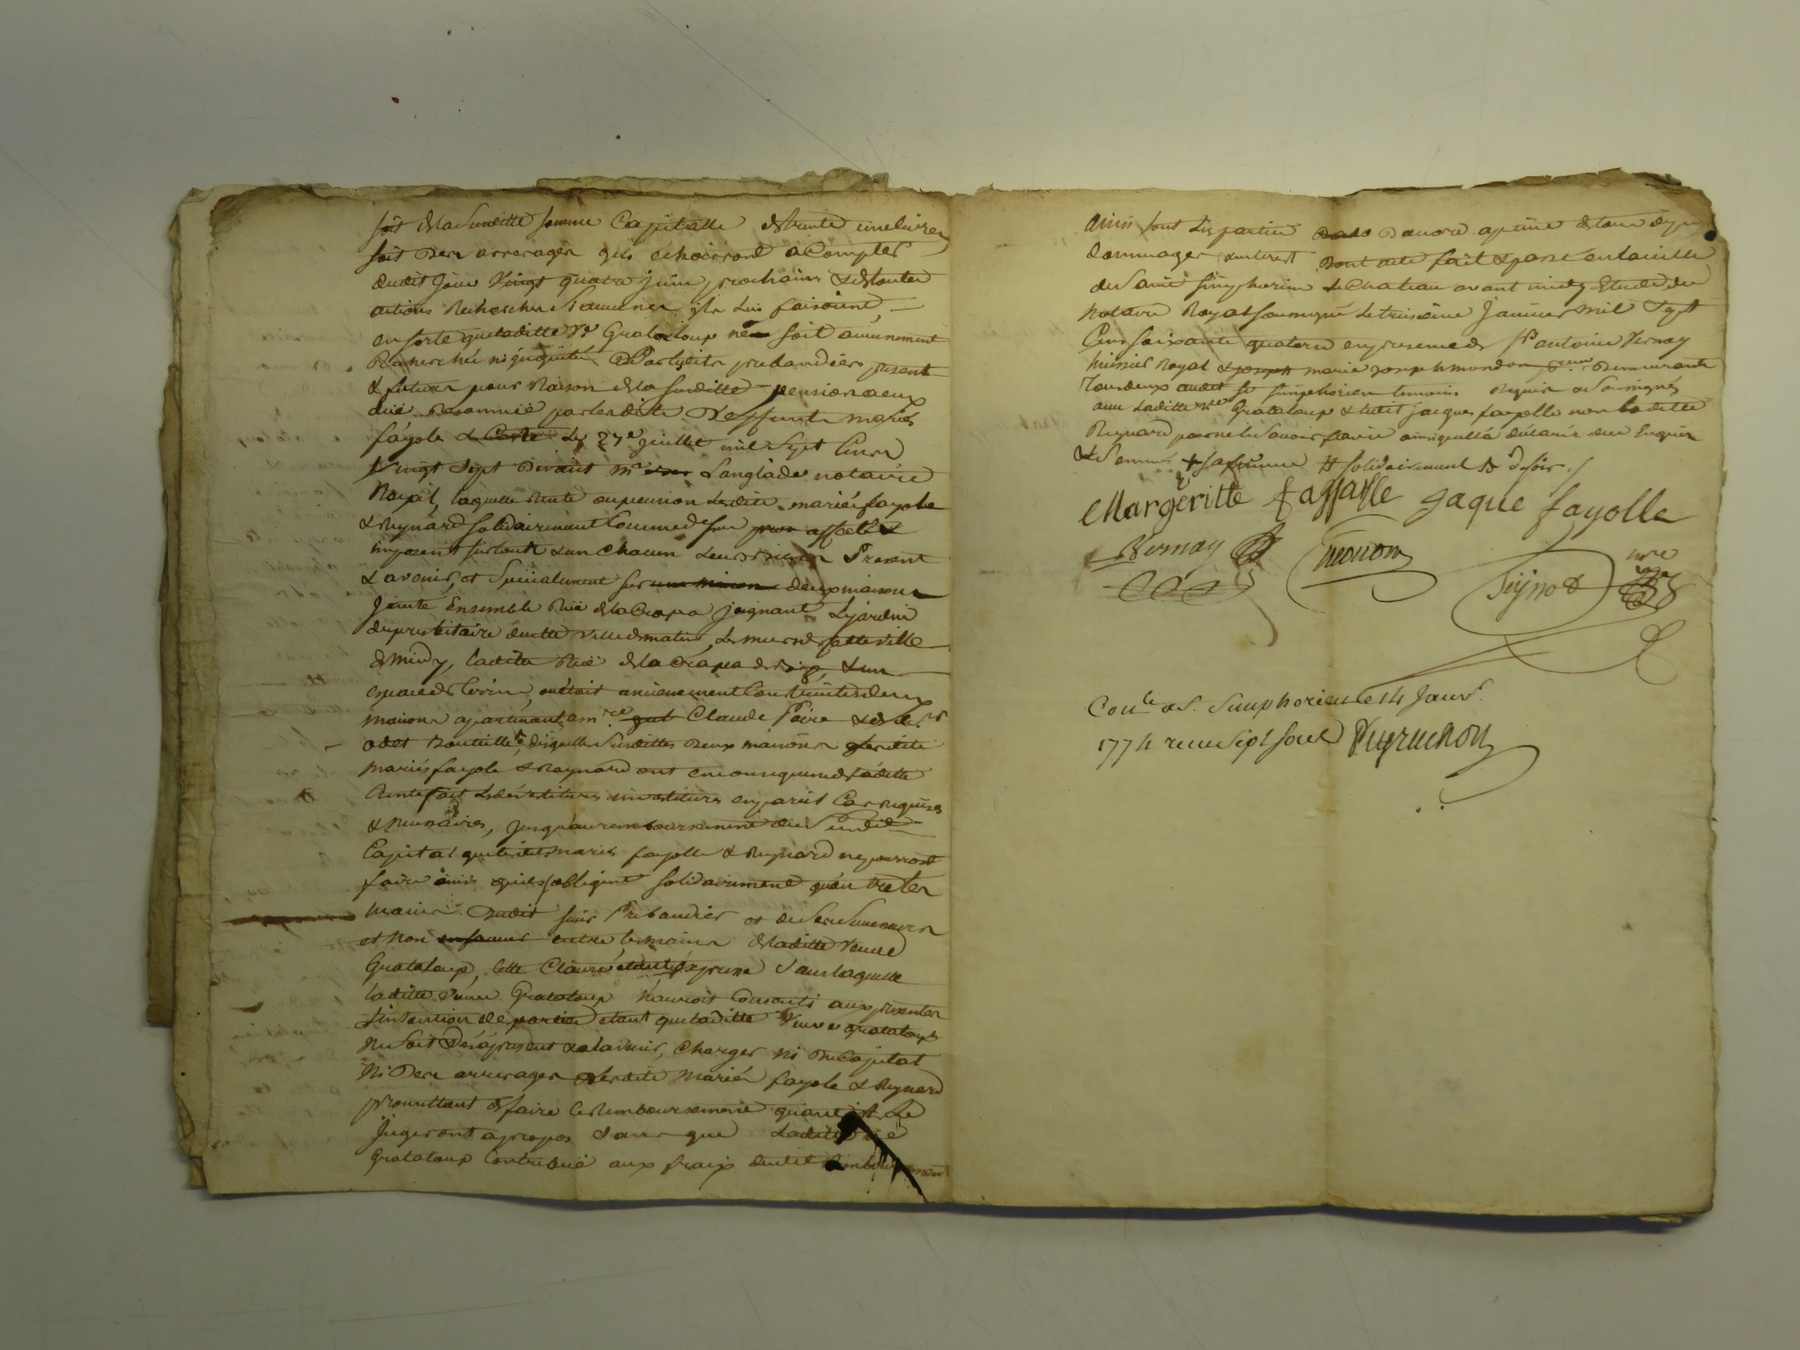 soit de la susditte somme Capitalle de trente une livres
soit des arrerages qui échoiront a Compter
dudit jour Vingt quatre juin prochain & de toutes
actions Recherches & demandes qls lui faisoient,
en sorte que laditte Ve Grataloup ne soit aucunement
Recherché ni inquiété Par lesdits prebandiers present
& future pour Raison de la susditte pension aeux
düe Reconnue par lesdits Deffunts mariés
fayole & Coste Le 27e juillet mil Sept Cent
Vingt Sept Devant Me Langlade notaire
Royal, laquelle Rente ou pension lesdits mariés fayole
& Reynard solidairement Comme dessus affecté &
imposent sur touts & un chacun leurs biens Present
& avenir, et Specialement sur une maison deux maisons
Jointe Ensemble Rue de la Drapa joignant Le jardin
du presbitaire de cette Ville de matin, Les murs de cette ville
de midy, laditte Rue de la Drapa de bize, & un
espace de terrin, ou étoit anciennement Construittes deux
maisons apartenant, a mre Claude Faire & de Srs
odet Bouteille, desquelles Susdittes Deux maisons lesdits
mariés fayole & Raynard ont en consequence de laditte
Rente fait Les devetitures investitures en pareil Cas requises
& necessaires, jusqu'au remboursement du Susdit
Capital que lesdits mariés fayolle & Reynard ne pourront
faire ainsi quils sobligent solidairement qu'en tre les
mains Dudit sieur Prebandier et de ses Successeurs
et Non entre les mains de laditte Veuve
Grataloup, Cette Clause étant exprime Sans laquelle
laditte Veuve Grataloup n'auroit Consenti aux presentes
L'intention des parties étant que laditte Veuve grataloup
ne Soit Des a present & a lavenir, Charger Ni Du Capital
Ni Des arrerages lesdits Mariés fayole & Reynard
promettant de faire le Remboursement quant ils Le
Jugeront apropos Sans que Laditte Ve
Grataloup Contribue aux fraix dudit Remboursement
ainsi sont Les parties D'acord apeine de tous depens
dommages & interest Dont acte fait & passé en la ville
de Saint Simphorien le Chateau avant midy Etude du
Notaire Royal Soussigné Le treisieme Janvier mil Sept
Cent Soixante quatorze en presence de Sr antoine Vernay
huissier Royal & marie Joseph mondon Demeurants
Tous deux audit St Simphorien temoins Requis & Soussignés
avec Laditte Ve Grataloup & ledit jacques fayolle non laditte
Reynard pour ne le Savoir faire ainsi quelle a déclaré de ce Enquise
& Sommé + sa femme # solidairement
Margeritte faffaylle jaque fayolle
Vernay Mondon Seijnot nre
Conle a St Simphorien le 14 Janvr.
1774 recu sept sous Peyruchon